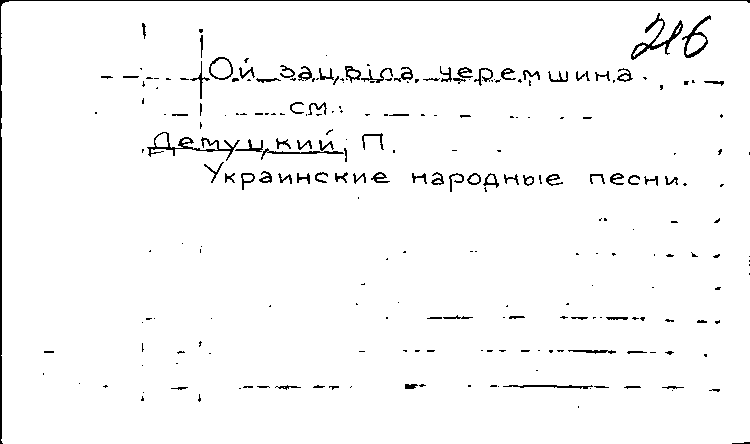 216
Ой зацвіла черемшина.
см.
Демуцкий, П.
Украинские народные песни.